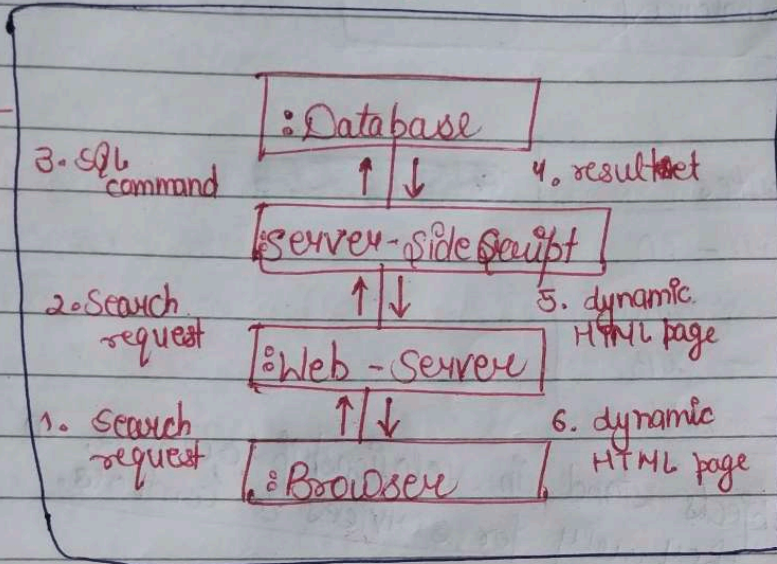 :Database
3. SQL
command
4. resultset
:Server-Side Script
2. Search
request
5. dynamic
HTML page
:Web-Server
1. Search
request
6. dynamic
HTML page
:Browser